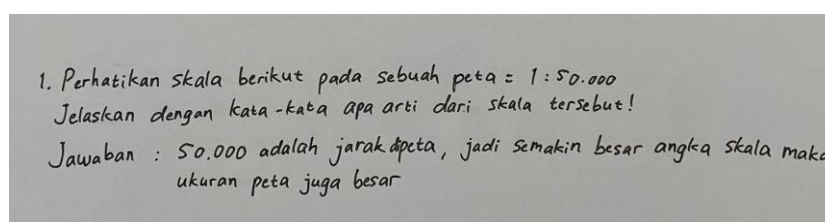 1. Perhatikan skala berikut pada sebuah peta = 1 : 50.000
Jelaskan dengan kata-kata apa arti dari skala tersebut!
Jawaban : 50.000 adalah jarak dpeta, jadi semakin besar angka skala maka
ukuran peta juga besar